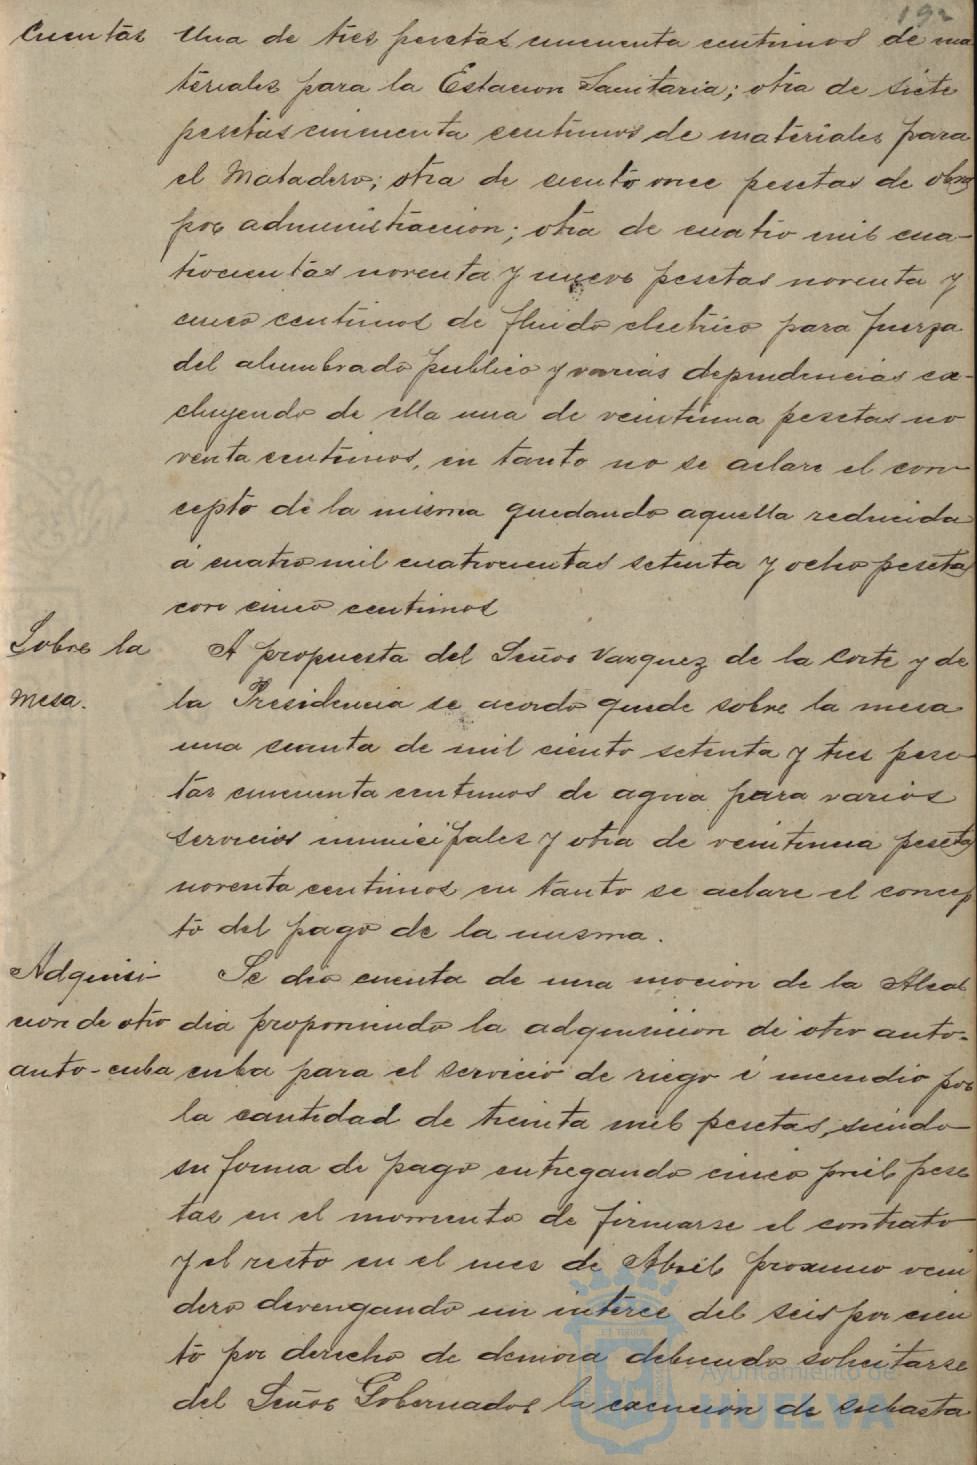 192
Cuentas Una de tres pesetas cincuenta centimos de ma
teriales para la Estacion Sanitaria; otra de siete
pesetas cincuenta centimos de materiales para
el Matadero; otra de ciento once pesetas de obras
por administraccion; otra de cuatro mil cua-
trocientas noventa y nueve pesetas noventa y
cinco centimos de fluido electrico para fuerza
del alumbrado publico y varias dependencias ex-
cluyendo de ella una de veintiuna pesetas no
venta centimos, en tanto no se aclare el con-
cepto de la misma quedando aquella reducida
á cuatro mil cuatrocientas setenta y ocho pesetas
con cinco centimos
Sobre la A propuesta del Señor Vazquez de la Corte y de
mesa. la Presidencia se acordo quede sobre la mesa
una cuenta de mil ciento setenta y tres pese-
tas cincuenta centimos de agua para varios
servicios municipales y otra de veintiuna pesetas
noventa centimos en tanto se aclare el concep
to del pago de la misma.
Adquisi- Se dio cuenta de una mocion de la Alcal
cion de otro dia proponiendo la adquisicion de otro auto-
auto-cuba cuba para el servicio de riego é incendio por
la cantidad de treinta mil pesetas, siendo
su forma de pago entregando cinco mil pese
tas en el momento de firmarse el contrato
y el resto en el mes de Abril proximo veni
dero devengando un interes del seis por cien
to por derecho de demora debiendo solicitarse
del Señor Gobernador la excencion de subasta
Ayuntamiento de
HUELVA